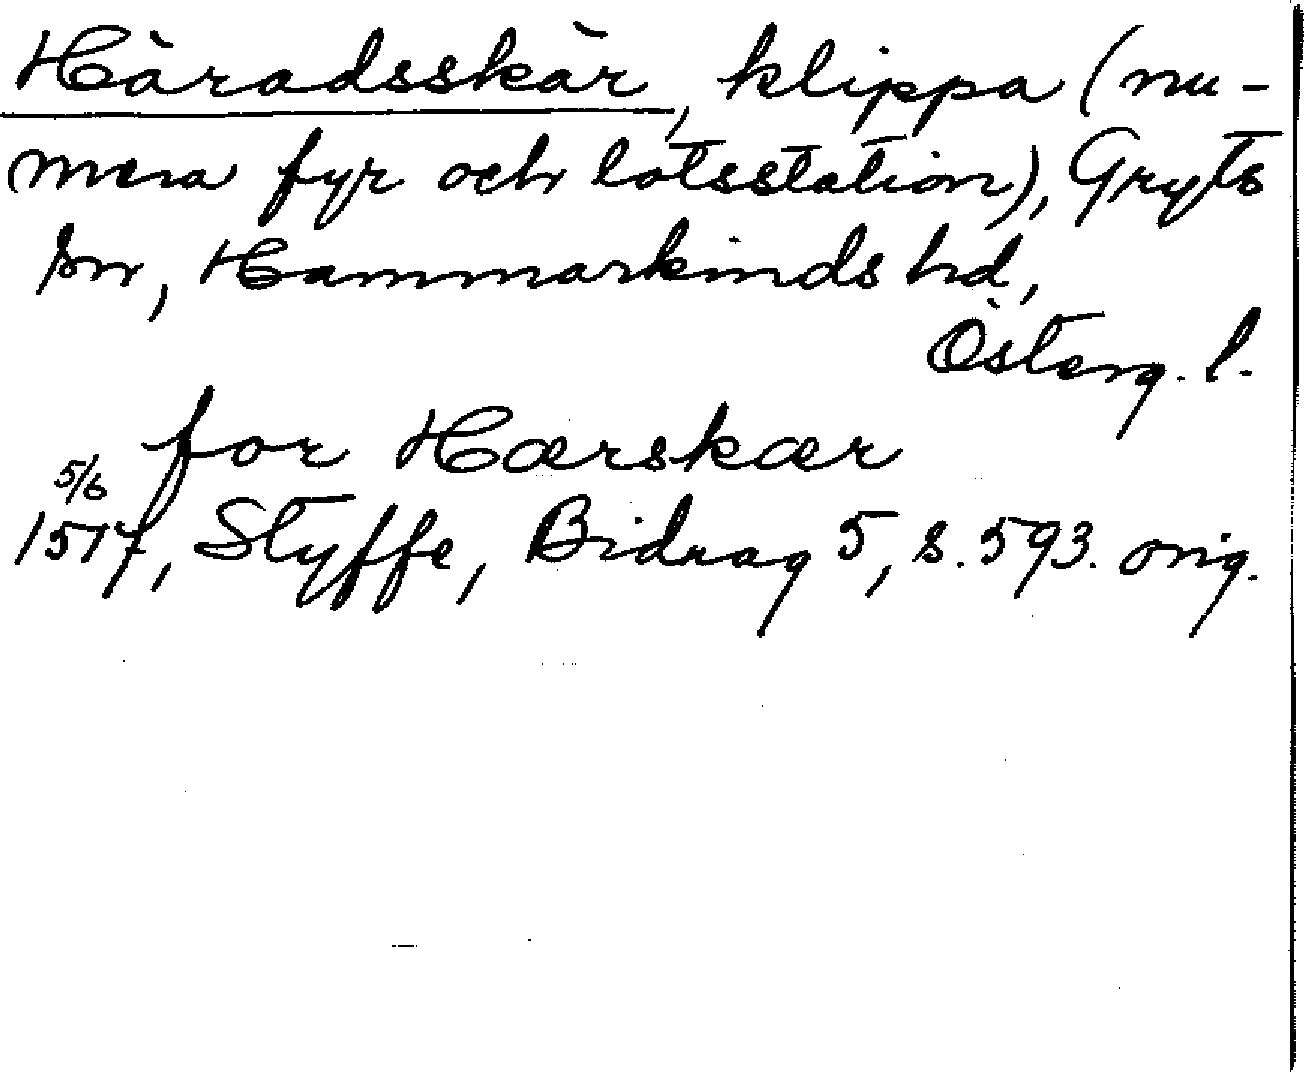 Häradsskär, klippa (nu-
mera fyr och lotsstation), Gryts
sn, Hammarkinds hd,
Österg. l.
for Hærskær
5/6
1517, Styffe, Bidrag 5, s. 593. orig.